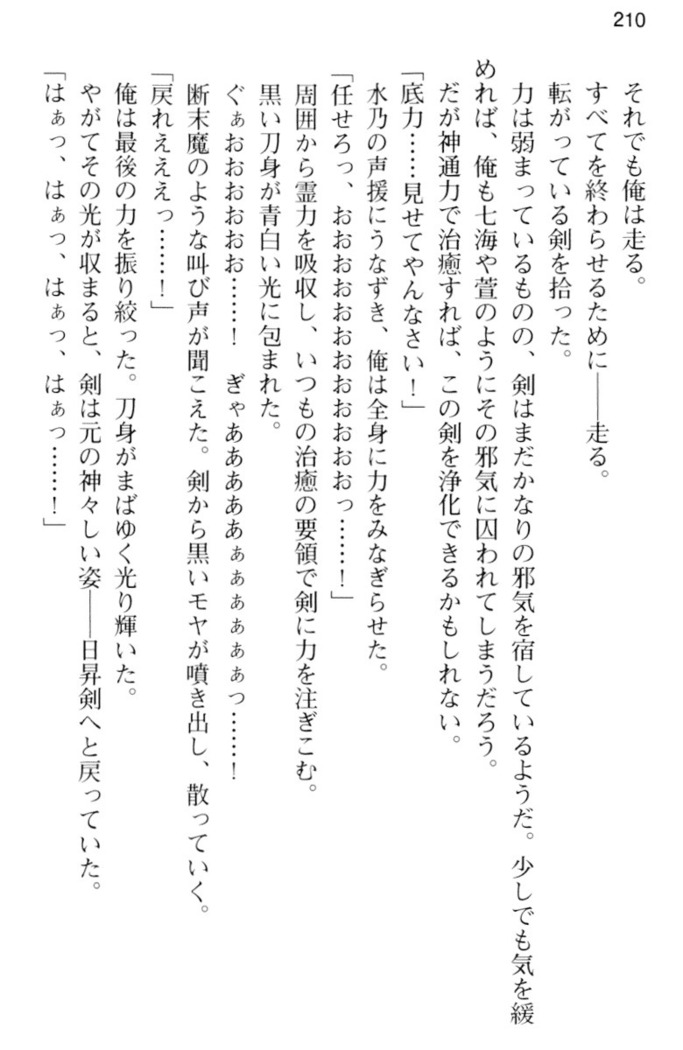 210
それでも俺は走る。
すべてを終わらせるために――走る。
転がっている剣を拾った。
力は弱まっているものの、剣はまだかなりの邪気を宿しているようだ。少しでも気を緩
めれば、俺も七海や萱のようにその邪気に囚われてしまうだろう。
だが神通力で治癒すれば、この剣を浄化できるかもしれない。
「底力……見せてやんなさい！」
水乃の声援にうなずき、俺は全身に力をみなぎらせた。
「任せろっ、おおおおおおおおおおおおっ……！」
周囲から霊力を吸収し、いつもの治癒の要領で剣に力を注ぎこむ。
黒い刀身が青白い光に包まれた。
ぐぁおおおおおおお……！　ぎゃああああああぁぁぁぁぁぁっ……！
断末魔のような叫び声が聞こえた。剣から黒いモヤが噴き出し、散っていく。
「戻れえええっ……！」
俺は最後の力を振り絞った。刀身がまばゆく光り輝いた。
やがてその光が収まると、剣は元の神々しい姿――日昇剣へと戻っていた。
「はぁっ、はぁっ、はぁっ、はぁっ……！」